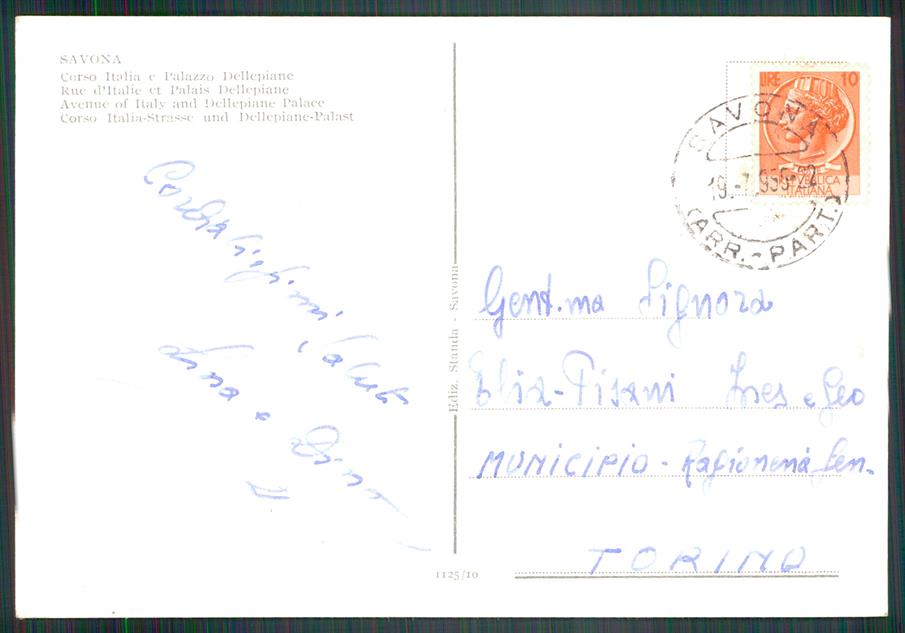 SAVONA
Corso Italia e Palazzo Dellepiane
Rue d'Italie et Palais Dellepiane
Avenue of Italy and Dellepiane Palace
Corso Italia-Strasse und Dellepiane-Palast
LIRE 10
REPUBBLICA
ITALIANA
SAVONA
(ARR.-PART.)
Cordialissimi saluti
Lina e Dino
Ediz. Standa - Savona
Gent.ma Signora
Elia-Pisani Ines e Geo
MUNICIPIO - Ragioneria Gen.
TORINO
1125/10